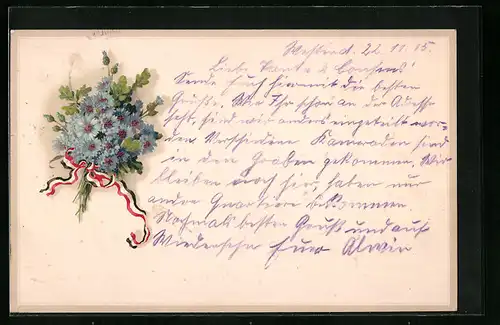 Westend. 22.11.15.
Liebe Tante & Cousens!
Sende Euch hiermit die besten
Grüsse. Wie Ihr schon an der Adesse
seht, sind wir anders eingeteilt wor-
den. Verschiedene Kameraden sind
in den Graben gekommen. Wir
bleiben noch hier, haben nur
andre Quartiere bekommen.
Nochmals besten Gruß und auf
Wiedersehn Euer Alwin